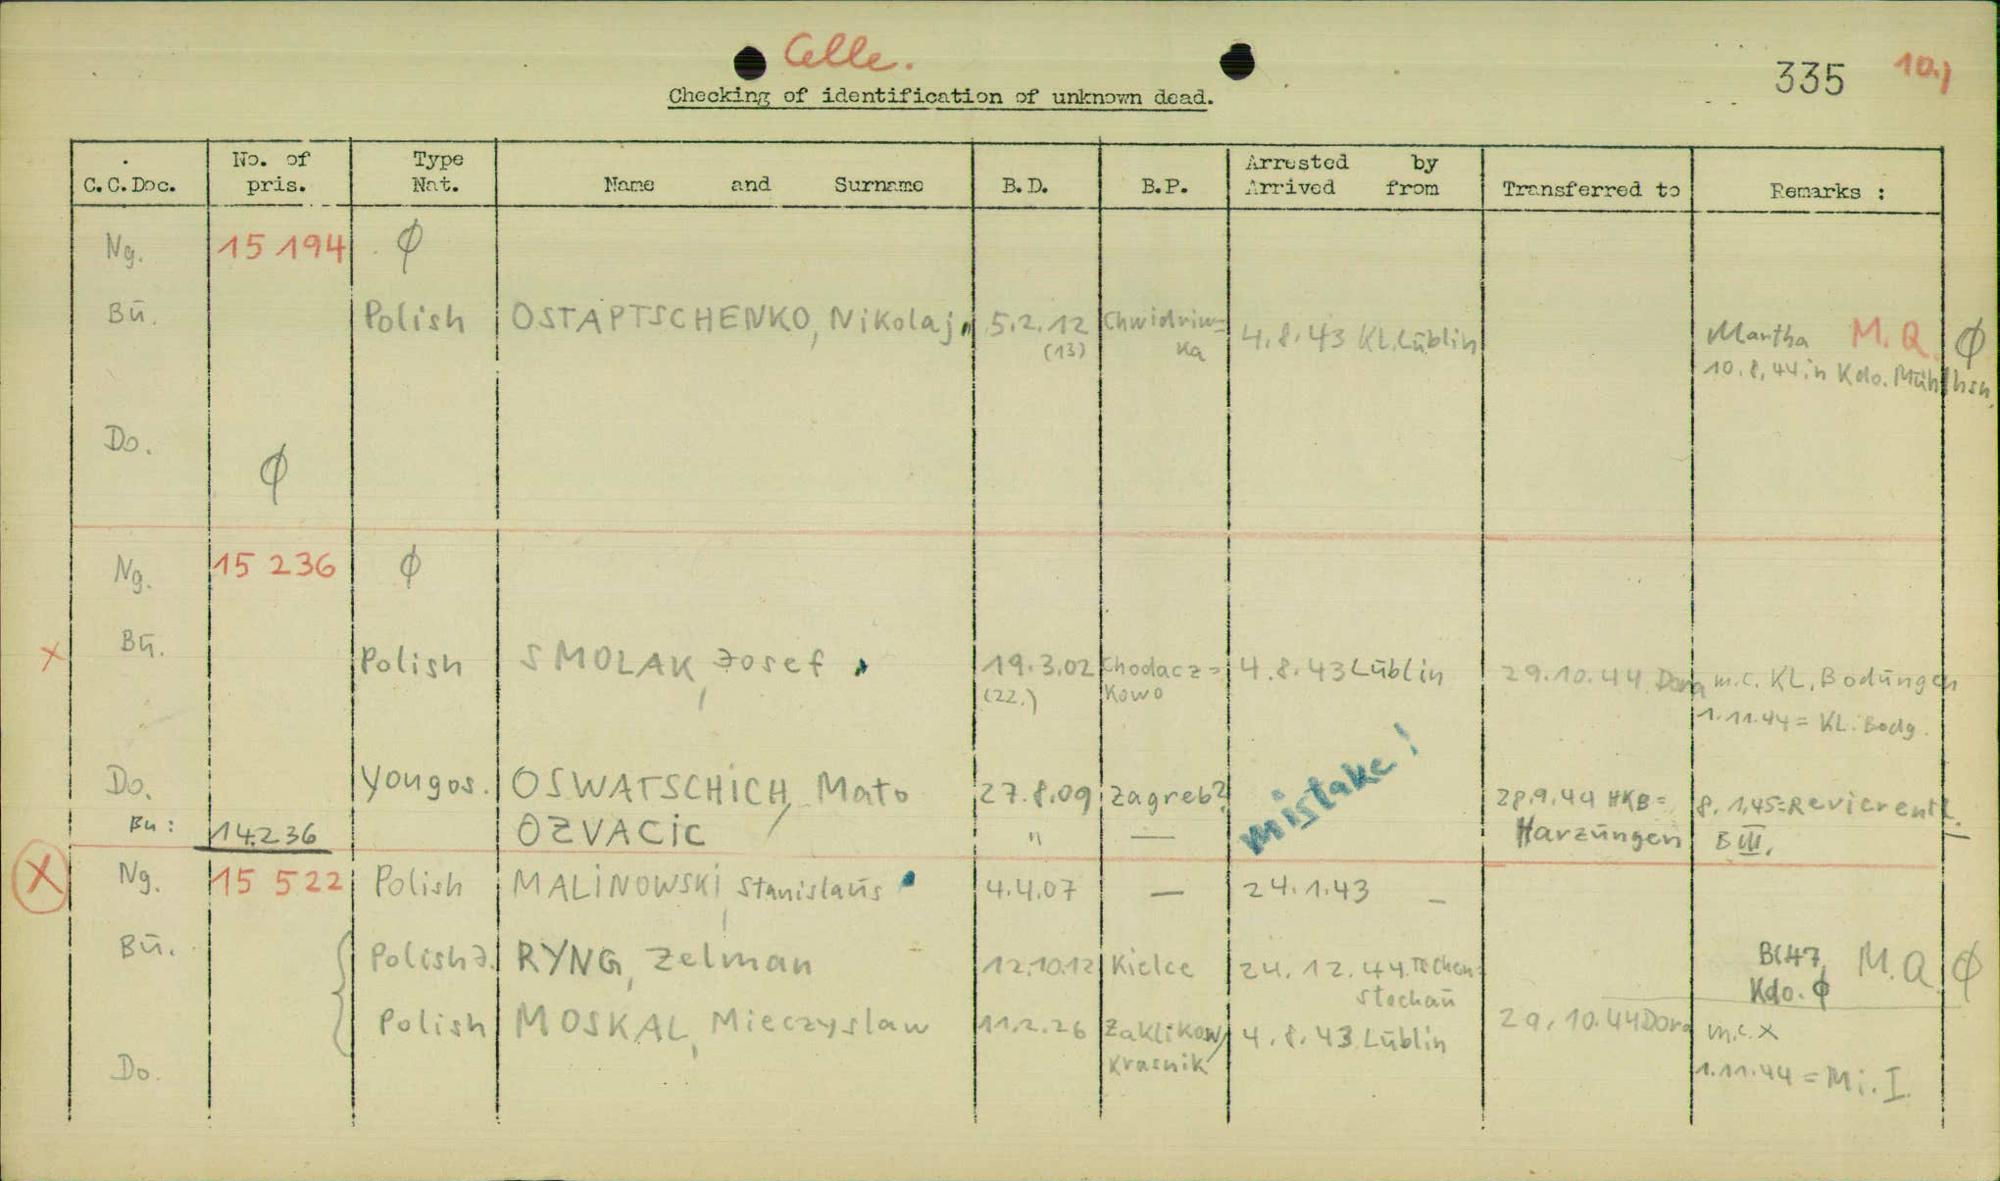 Celle.
335 10.)
Checking of identification of unknown dead.
C.C.Doc. No. of pris. Type Nat. Name and Surname B.D. B.P. Arrested by Arrived from Transferred to Remarks :
Ng. 15 194 ϕ
Bū. Polish OSTAPTSCHENKO, Nikolaj 5.2.12 Chwidriw= 4.8.43 KL.Lūblin Martha M.Q. ϕ
(13) ka 10.8.44 in Kdo. Mühlhsn.
Do. ϕ
Ng. 15 236 ϕ
x Bū. Polish SMOLAK, Josef 19.3.02 Chodacz= 4.8.43 Lūblin 29.10.44 Dora m.c. KL. Bodūngen
(22.) kowo 1.11.44 = KL. Bodg.
Do. Yougos. OSWATSCHICH, Mato 27.8.09 Zagreb? mistake! 28.9.44 HKB= 8.1.45=Revierentl.
Bu: 14236 OZVACIC " — Harzūngen B III.
X Ng. 15 522 Polish MALINOWSKI, Stanislaūs 4.4.07 — 24.1.43 –
Bū. Polish J. RYNG, Zelman 12.10.12 Kielce 24.12.44 Tschen= Bl47 M.Q. ϕ
stochaū Kdo. ϕ
Polish MOSKAL, Mieczyslaw 11.2.26 Zaklikow/ 4.8.43 Lūblin 29.10.44 Dora m.c. x
Krasnik
Do. 1.11.44 = Mi. I.